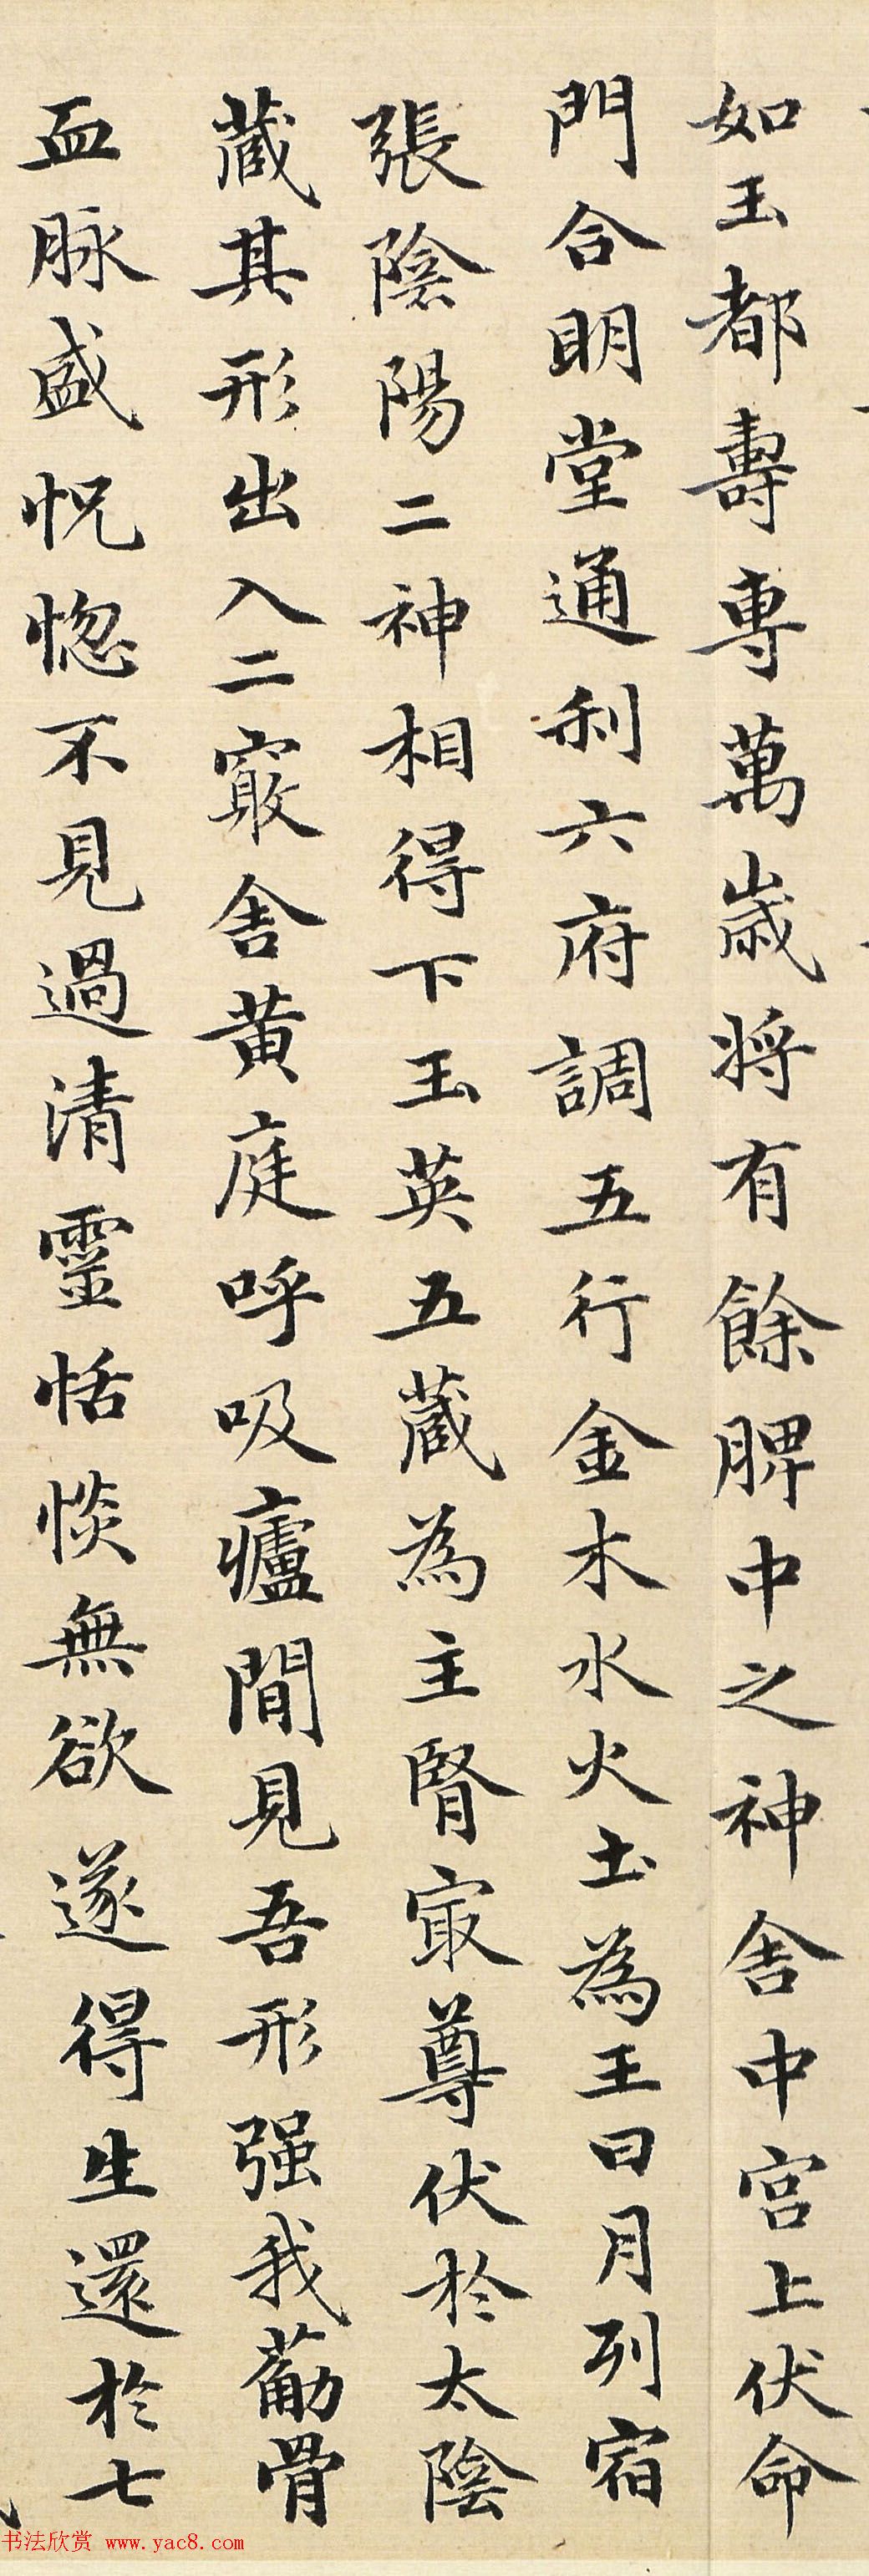 如玉都壽專萬歲將有餘脾中之神舍中宮上伏命
門合明堂通利六府調五行金木水火土為王日月列宿
張陰陽二神相得下玉英五藏為主腎冣尊伏於太陰
藏其形出入二竅舍黃庭呼吸廬間見吾形强我筋骨
血脉盛怳惚不見過清靈恬惔無欲遂得生還於七
书法欣赏 www.yac8.com